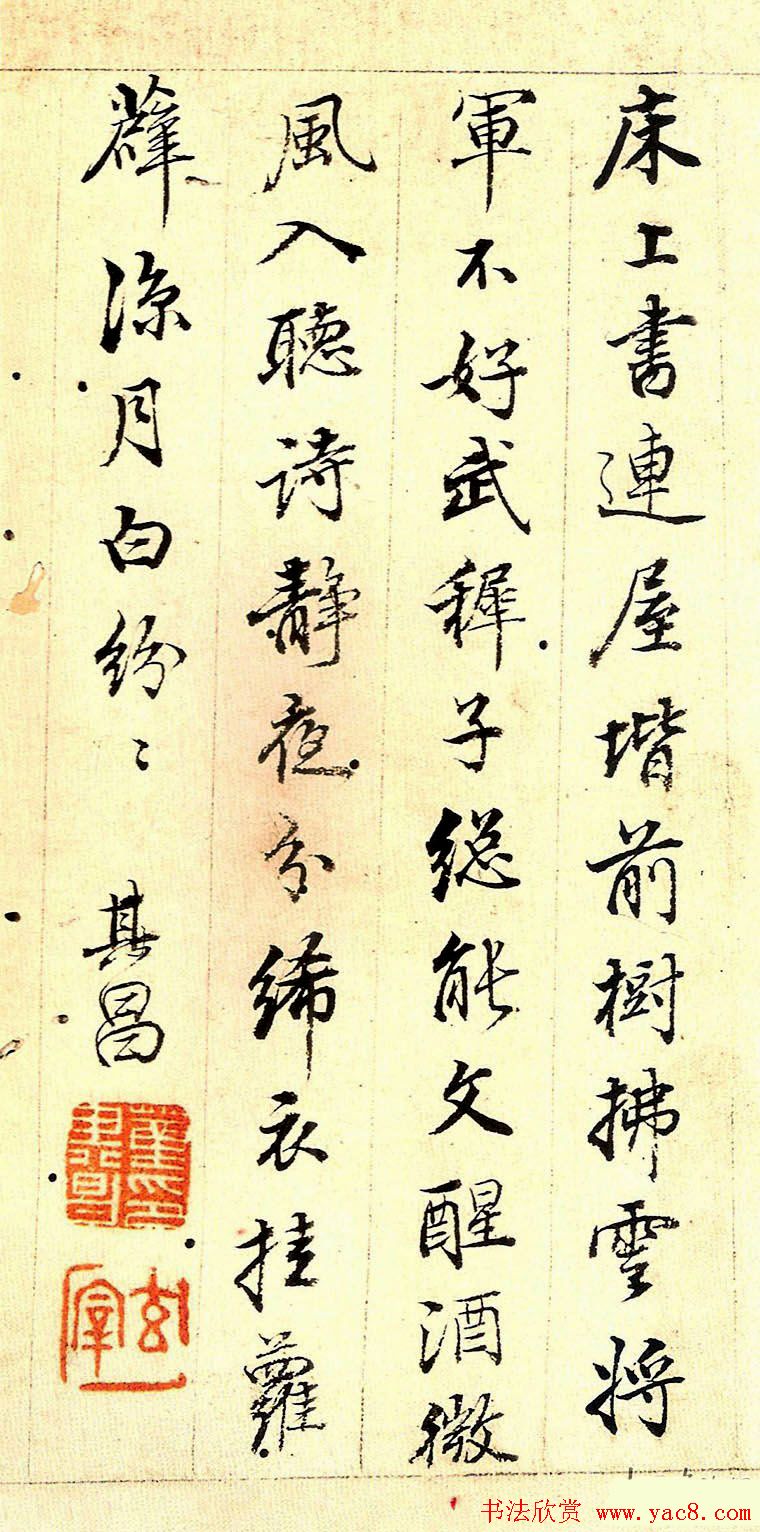 床上書連屋堦前樹拂雲將
軍不好武稺子総能文醒酒微
風入聽詩靜夜分絺衣挂蘿
薜涼月白紛〻 其昌
董其昌印
玄宰
书法欣赏 www.yac8.com